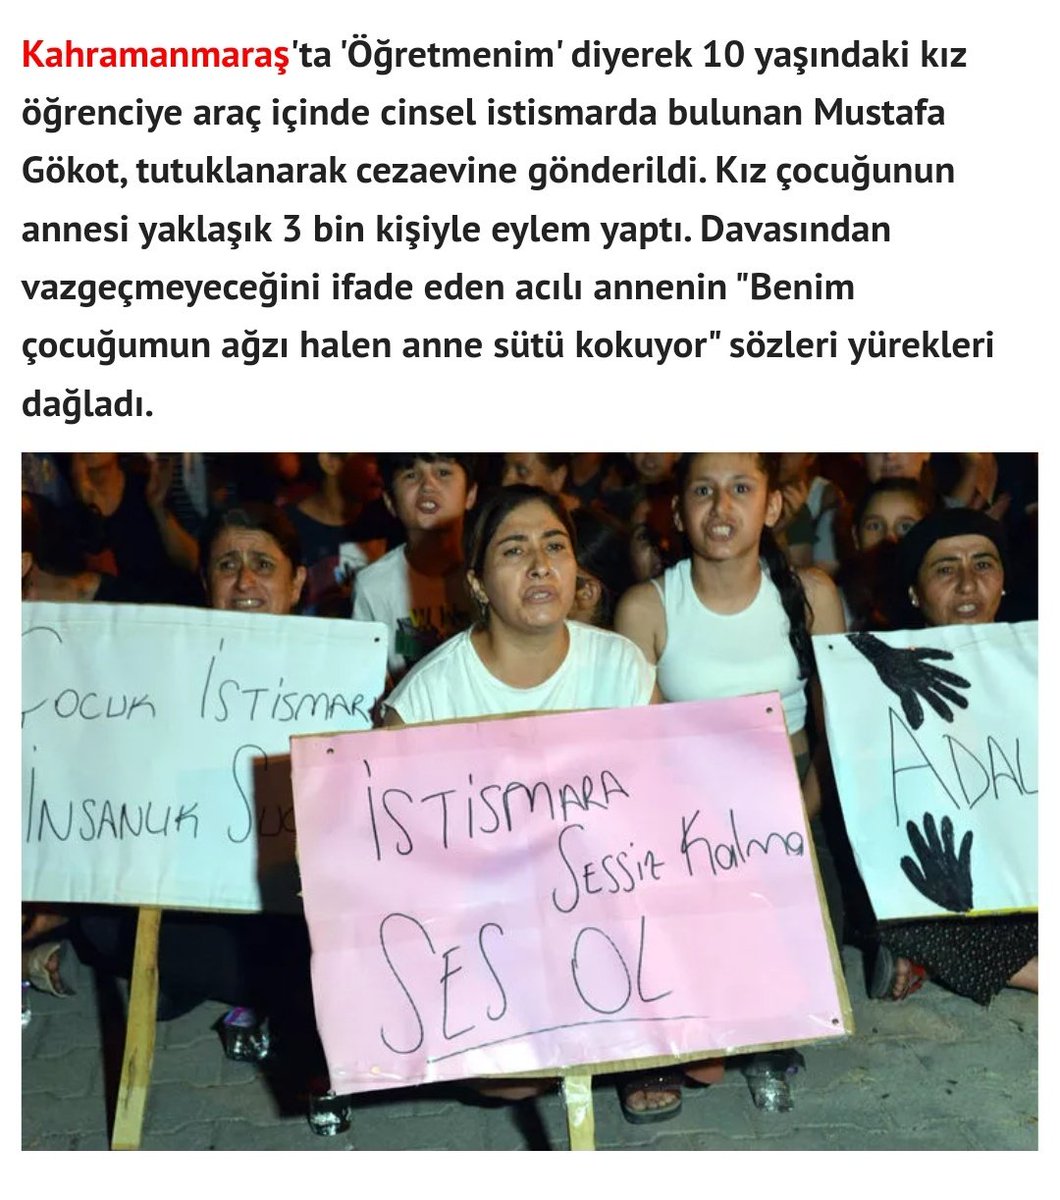 Kahramanmaraş'ta 'Öğretmenim' diyerek 10 yaşındaki kız
öğrenciye araç içinde cinsel istismarda bulunan Mustafa
Gökot, tutuklanarak cezaevine gönderildi. Kız çocuğunun
annesi yaklaşık 3 bin kişiyle eylem yaptı. Davasından
vazgeçmeyeceğini ifade eden acılı annenin "Benim
çocuğumun ağzı halen anne sütü kokuyor" sözleri yürekleri
dağladı.
ÇOCUK İSTİSMARI
İNSANLIK SUÇ
İSTİSMARA
SESSİZ Kalma
SES OL
ADAL